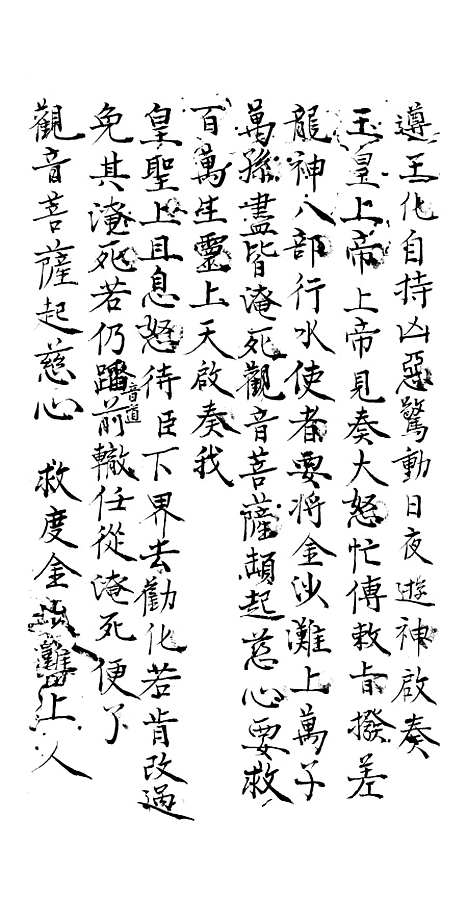 遵王化自持凶惡驚動日夜遊神啟奏
玉皇上帝上帝見奏大怒忙傳敕旨撥差
龍神八部行水使者要將金沙灘上萬子
萬孫盡皆淹死觀音菩薩頓起慈心要救
百萬生靈上天啟奏我
皇聖上且息怒待臣下界去勸化若肯改過
免其淹死若仍蹈音道前轍任從淹死便了
觀音菩薩起慈心 救度金沙灘上人